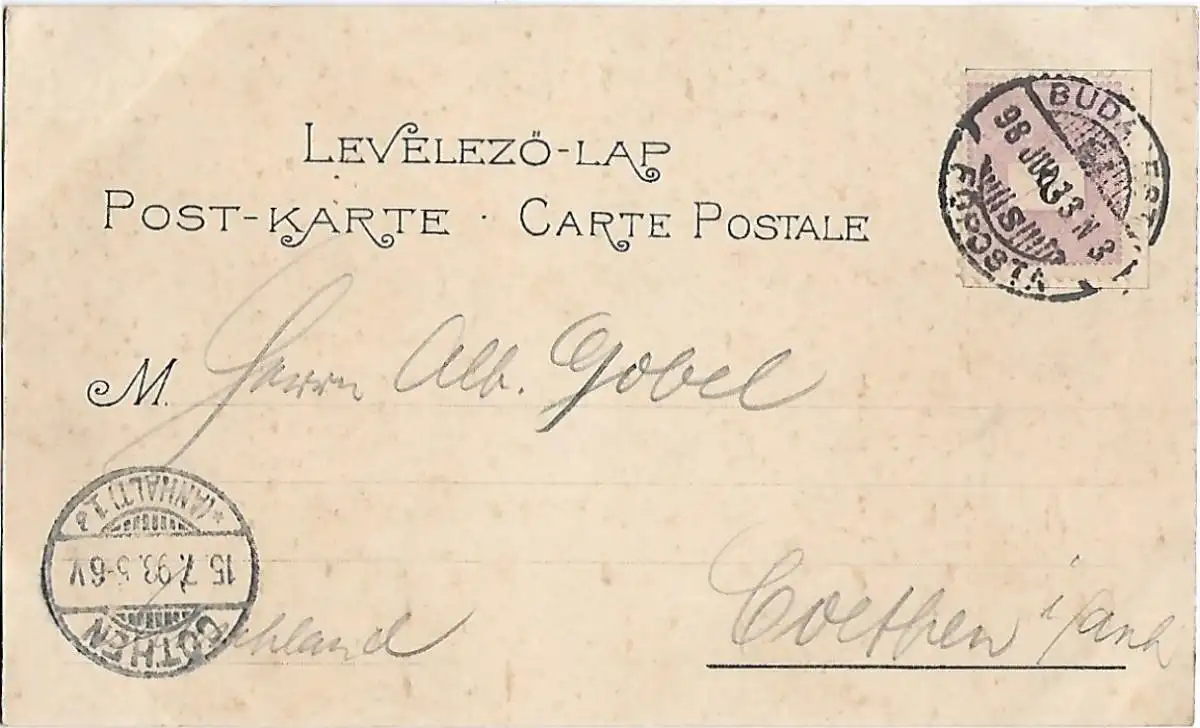 LEVELEZŐ-LAP
POST-KARTE · CARTE POSTALE
BUDAPEST
98 JUL 13 N 3
FŐPOSTA
M. Herrn Alb. Gobel
*(ANHALT) 1. a
15. 7. 98. 5-6 V.
CÖTHEN
Coethen i/Anh